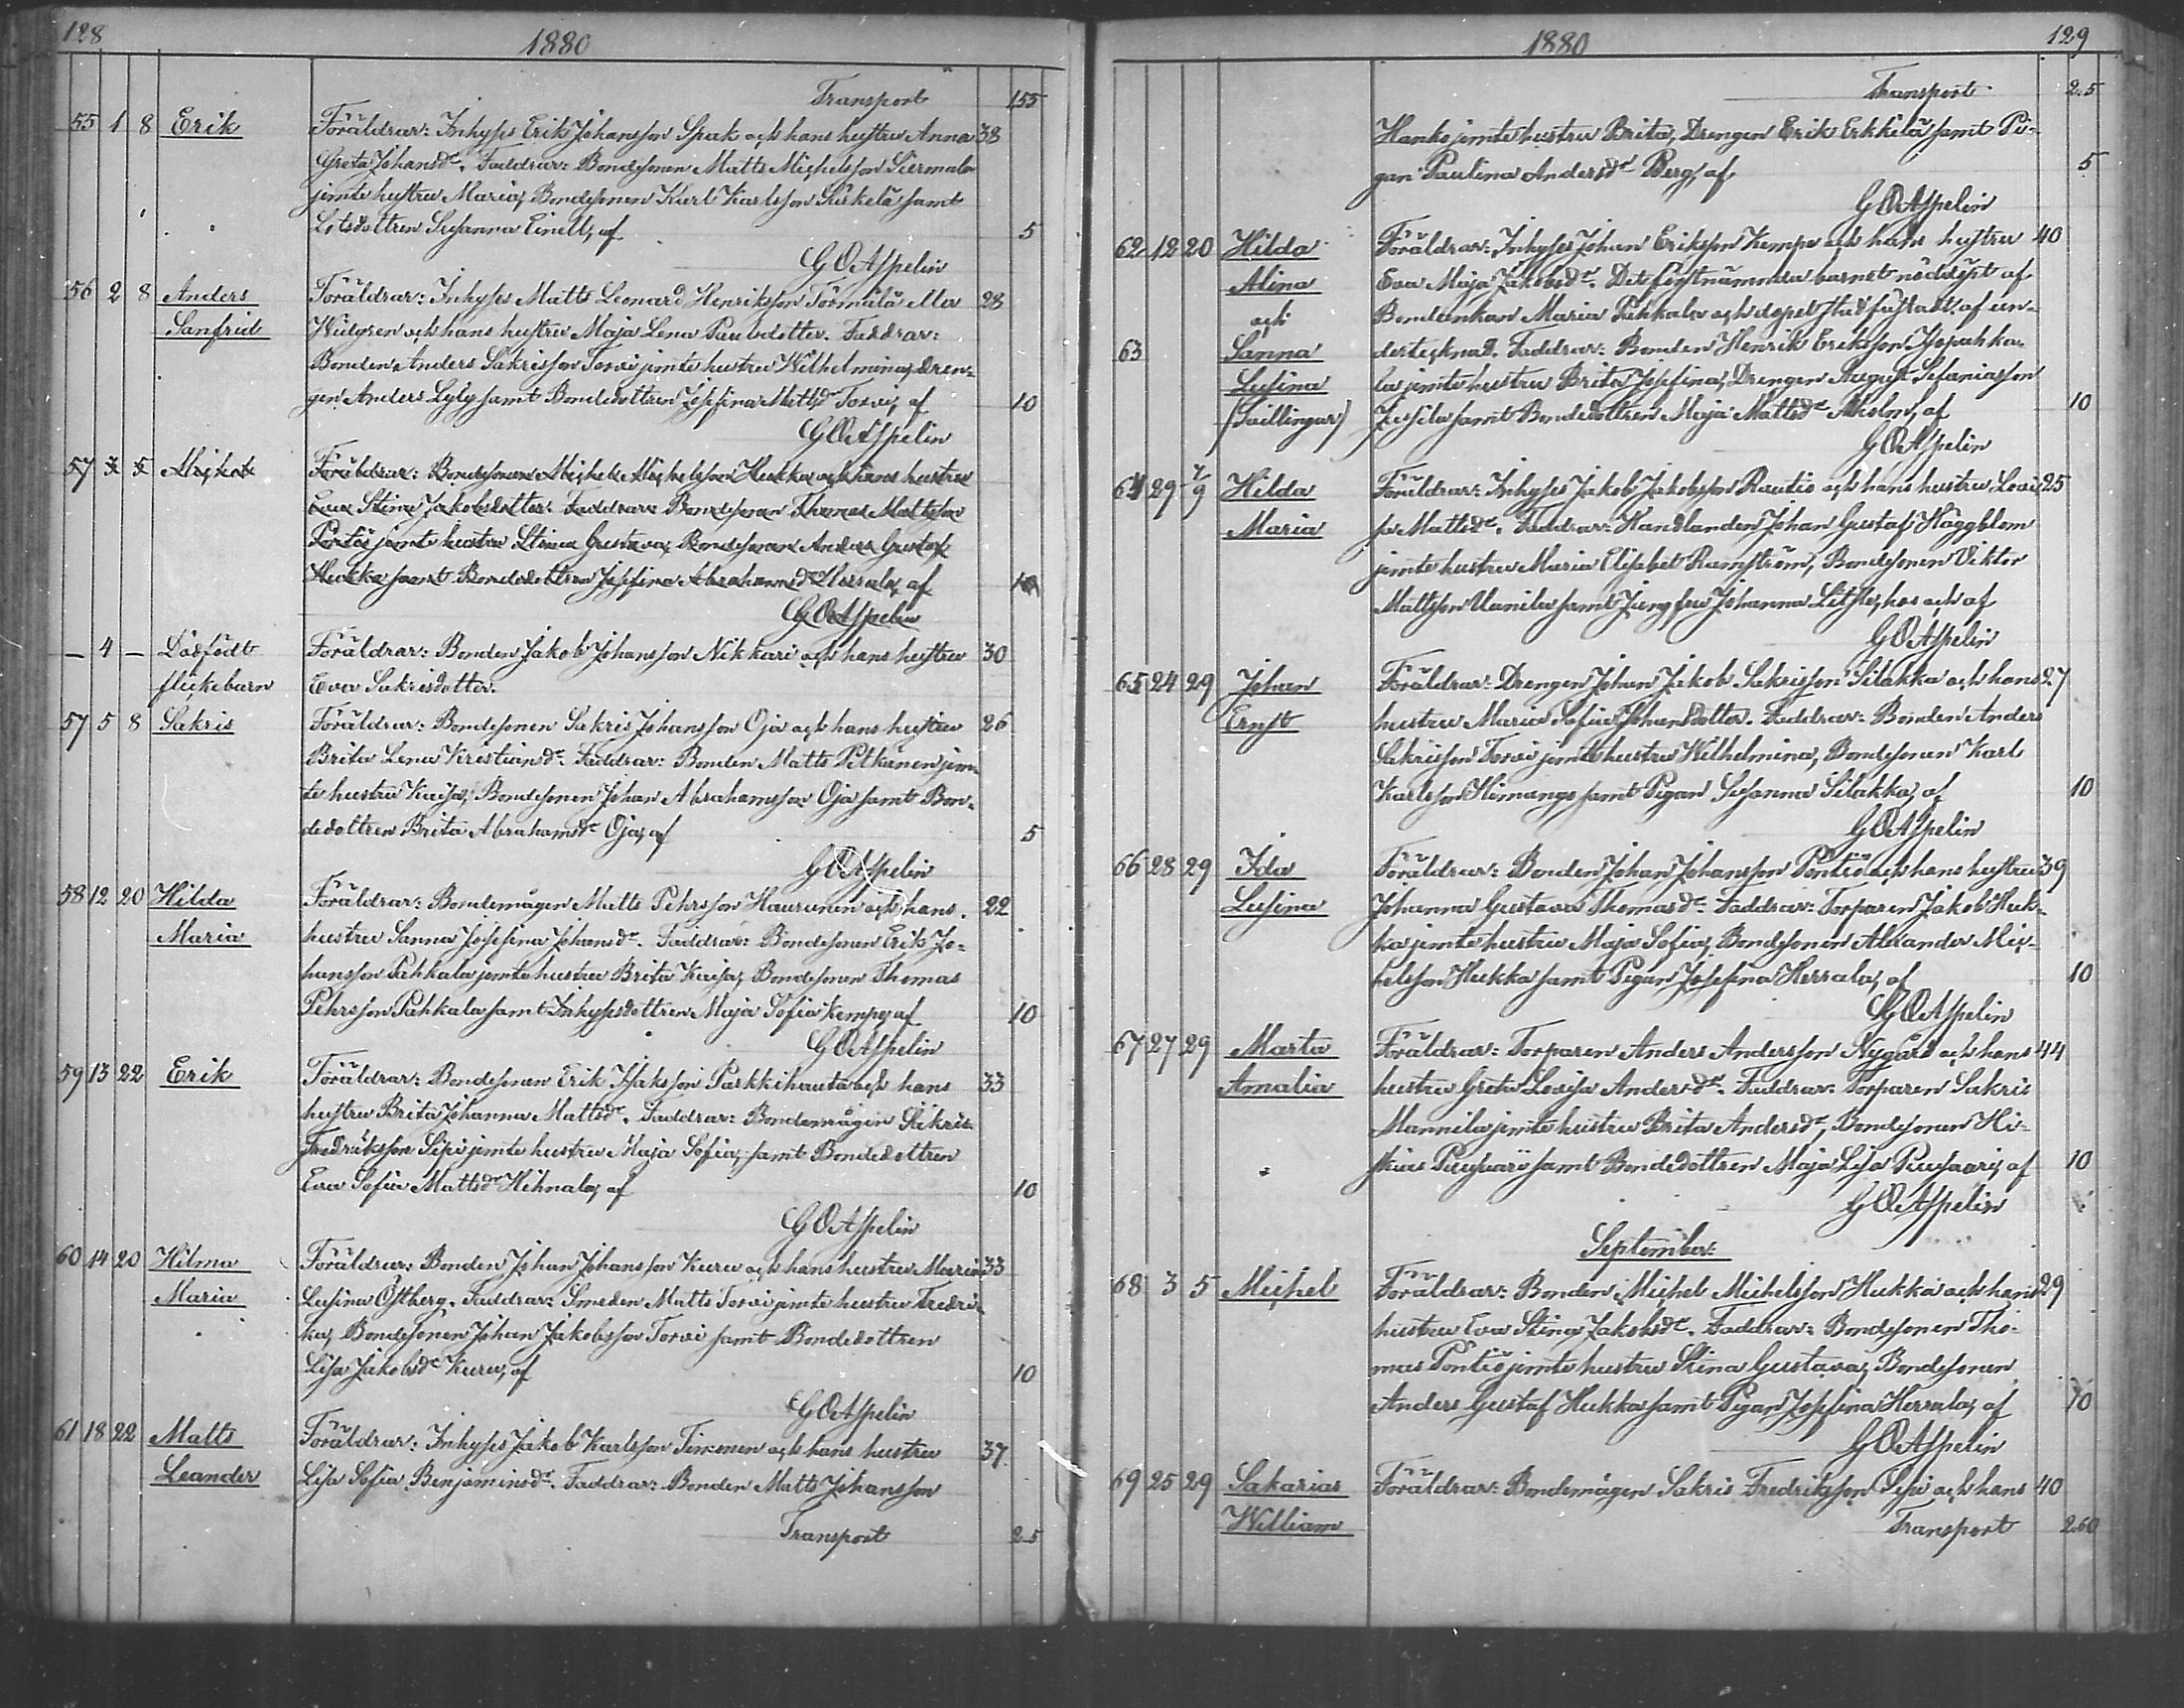 128
1880
Transport 155
55 1 8 Erik Föräldrar: Inhyses Erik Johansson Spak och hans hustru Anna 38
Greta Johansdr. Faddrar: Bondesonen Matts Michelsson Siermala
jemte hustru Maria, Bondesonen Karl Karlsson Siirkelä samt
Lotsdottren Susanna Einell, af 5
G O Aspelin
56 2 8 Anders Föräldrar: Inhyses Matts Leonard Henriksson Törmälä eller 28
Sanfrid Widgren och hans hustru Maja Lena Paulsdotter. Faddrar:
Bonden Anders Sakrisson Torvi jemte hustru Wilhelmina, dren-
gen Anders Lyly samt Bondedottren Josefina Mattsdr Torvi, af 10
G O Aspelin
57 3 5 Michel Föräldrar: Bondesonen Michel Michelsson Hukka och hans hustru
Eva Stina Jakobsdotter. Faddrar: Bondesonen Thomas Mattsson
Pontiö jemte hustru Stina Gustava, Bondesonen Anders Gustaf
Hukka samt Bondedottren Josefina Abrahamsdr Herrala, af 10
G O Aspelin
— 4 — Dödfödt Föräldrar: Bonden Jakob Johansson Nikkari och hans hustru 30
flickebarn Eva Sakrisdotter.
57 5 8 Sakris Föräldrar: Bondesonen Sakris Johansson Oja och hans hustru 26
Brita Lena Kristiansdr. Faddrar: Bonden Matts Pitkänen jem-
te hustru Kaisa, Bondesonen Johan Abrahamsson Oja samt Bon-
dedottren Brita Abrahamsdr Oja, af 5
G O Aspelin
58 12 20 Hilda Föräldrar: Bondemågen Matts Pehrsson Haurunen och hans 22
Maria hustru Sanna Josefina Johansdr. Faddrar: Bondesonen Erik Jo-
hansson Pahkala jemte hustru Brita Kaisa, Bondesonen Thomas
Pehrsson Pahkala samt Inhysesdottren Maja Sofia Kempe, af 10
G O Aspelin
59 13 22 Erik Föräldrar: Bondesonen Erik Isaksson Parkkihauta och hans 33
hustru Brita Johanna Mattsdr. Faddrar: Bondemågen Sakris
Fredriksson Sipi jemte hustru Maja Sofia, samt Bondedottren
Eva Sofia Mattsdr Hihnala, af 10
G O Aspelin
60 14 20 Hilma Föräldrar: Bonden Johan Johansson Kuru och hans hustru Maria 33
Maria Lusina Östberg. Faddrar: Smeden Matts Torvi jemte hustru Fredri-
ka, Bondesonen Johan Jakobsson Torvi samt Bondedottren
Lisa Jakobsdr Kuru, af 10
G O Aspelin
61 18 22 Matts Föräldrar: Inhyses Jakob Karlsson Timonen och hans hustru 37
Leander Lisa Sofia Benjaminsdr. Faddrar: Bonden Matts Johansson
Transport 2.5
1880
129
Transport 2.5
Hanko jemte hustru Brita, Drengen Erik Erkkilä samt Pi-
gan Paulina Andersdr Berg, af 5
G O Aspelin
62 12 20 Hilda Föräldrar: Inhyses Johan Eriksson Kempe och hans hustru 40
Alina Eva Maja Jakobsdr. Det förstnämnda barnet nöddöpt af
och Bondenkan Maria Pahkala och dopet stadfästadt af un-
63 Sanna dertecknad. Faddrar: Bonden Henrik Eriksson Isopahka-
Lusina la jemte hustru Brita Josefina, Drengen August Sefaniasson
(Tvillingar) Jussila samt Bondedottren Maja Mattsdr, af 10
G O Aspelin
64 29 7/9 Hilda Föräldrar: Inhyses Jakob Jakobsson Rautio och hans hustru Lovi 25
Maria sa Mattsdr. Faddrar: Handlanden Johan Gustaf Häggblom
jemte hustru Maria Elisabet Ramström, Bondesonen Viktor
Mattsson Uunila samt Jungfru Johanna, hos och af
G O Aspelin
65 24 29 Johan Föräldrar: Drengen Johan Jakob Sakrisson Silakka och hans 27
Ernst hustru Maria Sofia Johansdotter. Faddrar: Bonden Anders
Sakrisson Torvi jemte hustru Wilhelmina, Bondesonen Karl
Karlsson Himanga samt Pigan Susanna Silakka, af 10
G O Aspelin
66 28 29 Ida Föräldrar: Bonden Johan Johansson Pontiö och hans hustru 39
Lusina Johanna Gustava Thomasdr. Faddrar: Torparen Jakob Huk-
ka jemte hustru Maja Sofia, Bondesonen Alexander Mic-
helsson Hukka samt Pigan Josefina Herrala, af 10
G O Aspelin
67 27 29 Marta Föräldrar: Torparen Anders Andersson Nygård och hans 44
Amalia hustru Greta Lovisa Andersdr. Faddrar: Torparen Sakris
Mannila jemte hustru Brita Andersdr, Bondesonen Hi-
skias Puusaari samt Bondedottren Maja Lisa Puusaari, af 10
G O Aspelin
September.
68 3 5 Michel Föräldrar: Bonden Michel Michelsson Hukka och hans 29
hustru Eva Stina Jakobsdr. Faddrar: Bondesonen Tho-
mas Pontiö jemte hustru Stina Gustava, Bondesonen
Anders Gustaf Hukka samt Pigan Josefina Herrala, af 10
G O Aspelin
69 25 29 Sakarias Föräldrar: Bondemågen Sakris Fredriksson Sipi och hans 40
William Transport 2.60